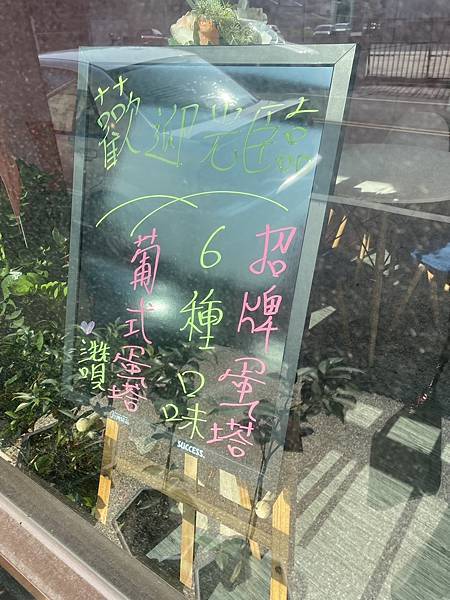 歡迎光臨
招牌蛋塔
6種口味
葡式蛋塔
讚
SUCCESS.